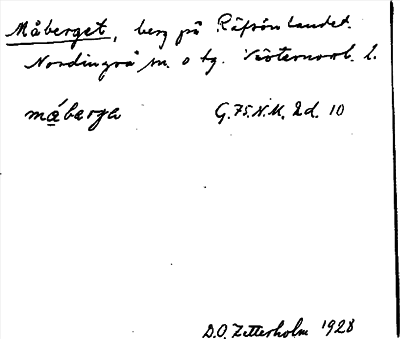 Måberget, berg på Räfsön landet.
Nordingrå sn. o tg. Västernorrl. l.
måbærgə G.75.N.M. 2d. 10
D.O. Zetterholm 1928